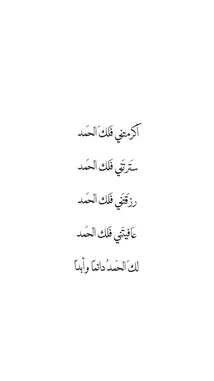 أكرمتني فَلك الحَمد
ستَرتَني فَلك الحَمد
رزقتَني فَلك الحَمد
عَافيتَني فَلك الحَمد
لكَ الحَمدُ دائمًا وأبدًا